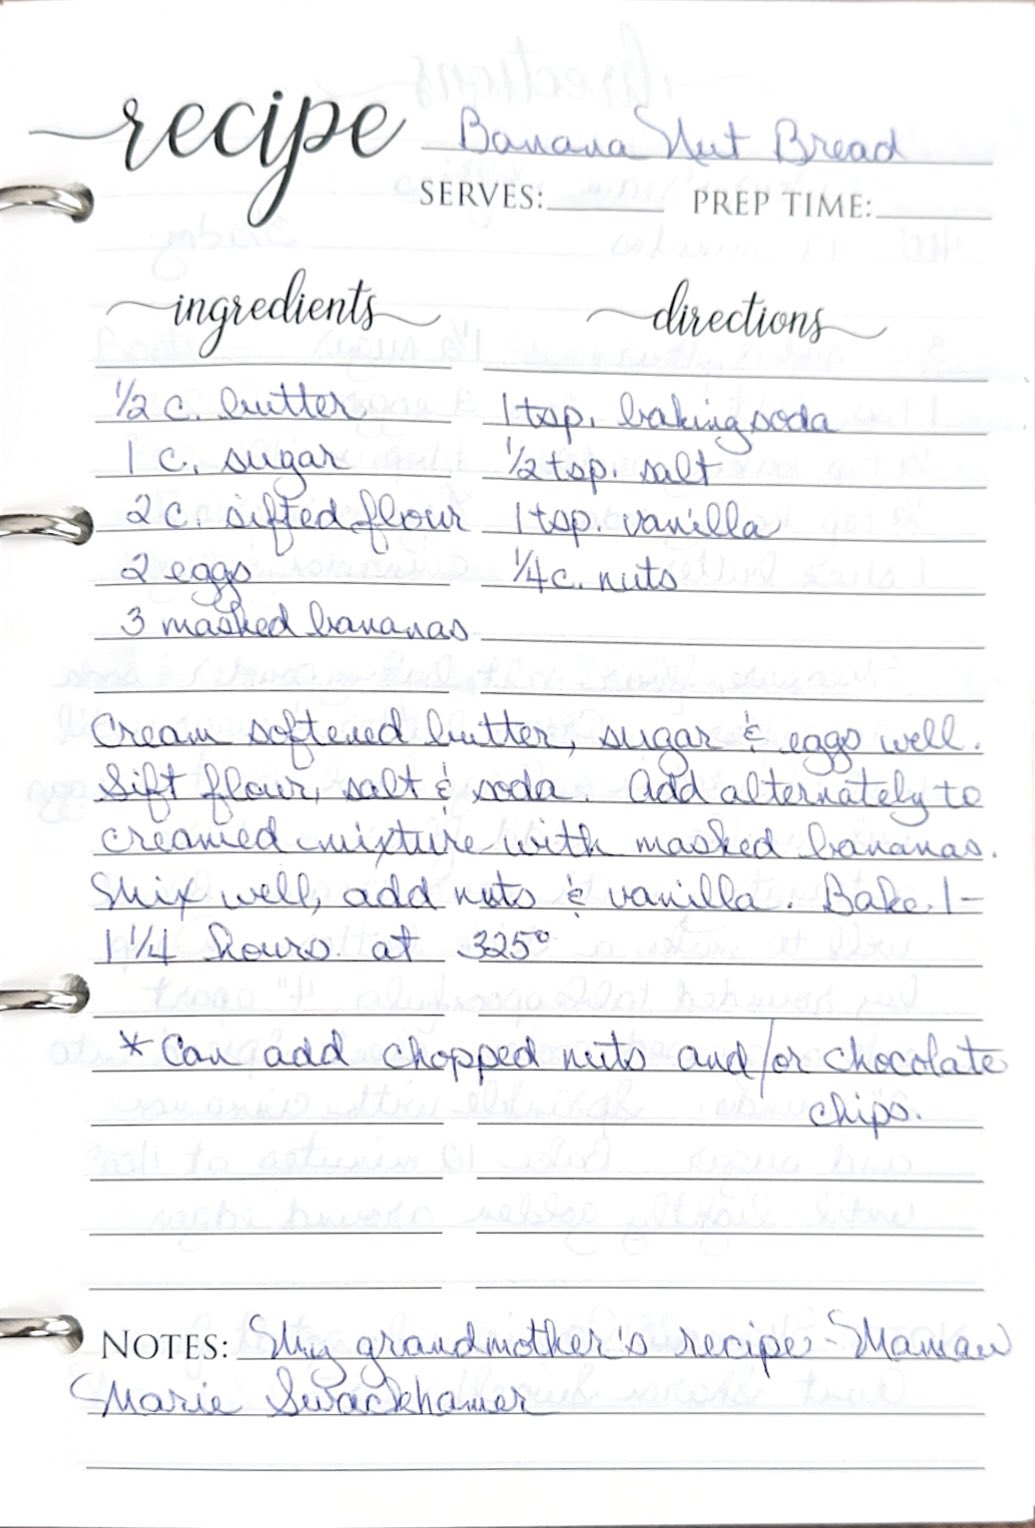 recipe Banana Nut Bread
SERVES: PREP TIME:
ingredients
½ c. butter
1 c. sugar
2 c. sifted flour
2 eggs
3 mashed bananas
directions
1 tsp. baking soda
½ tsp. salt
1 tsp. vanilla
¼ c. nuts
Cream softened butter, sugar & eggs well.
Sift flour, salt & soda. Add alternately to
creamed mixture with mashed bananas.
Mix well, add nuts & vanilla. Bake 1-
1 ¼ hours at 325°
* Can add chopped nuts and/or chocolate
chips.
NOTES: My grandmother's recipe - Mamaw
Marie Swackhamer